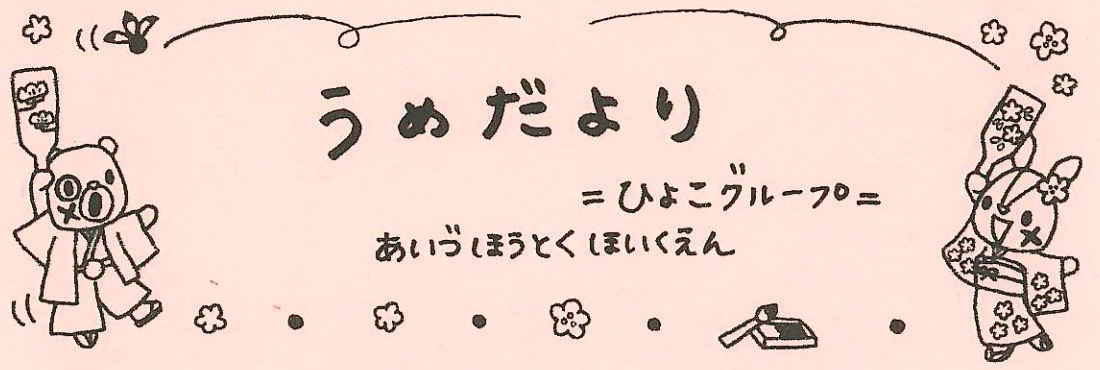 うめだより
=ひよこグループ=
あいづほうとくほいくえん